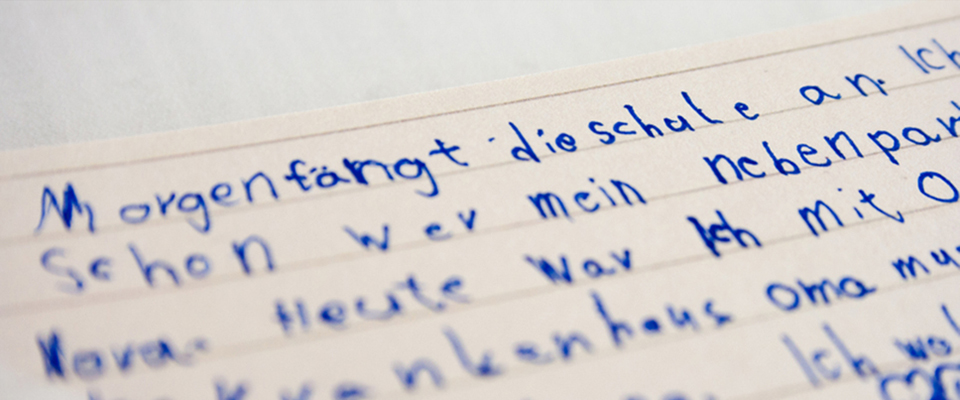 Morgen fängt die schule an. Ich
Schon wer mein nebenpar
Nora. Heute war Ich mit O
krankenhaus oma mu
Ich wol